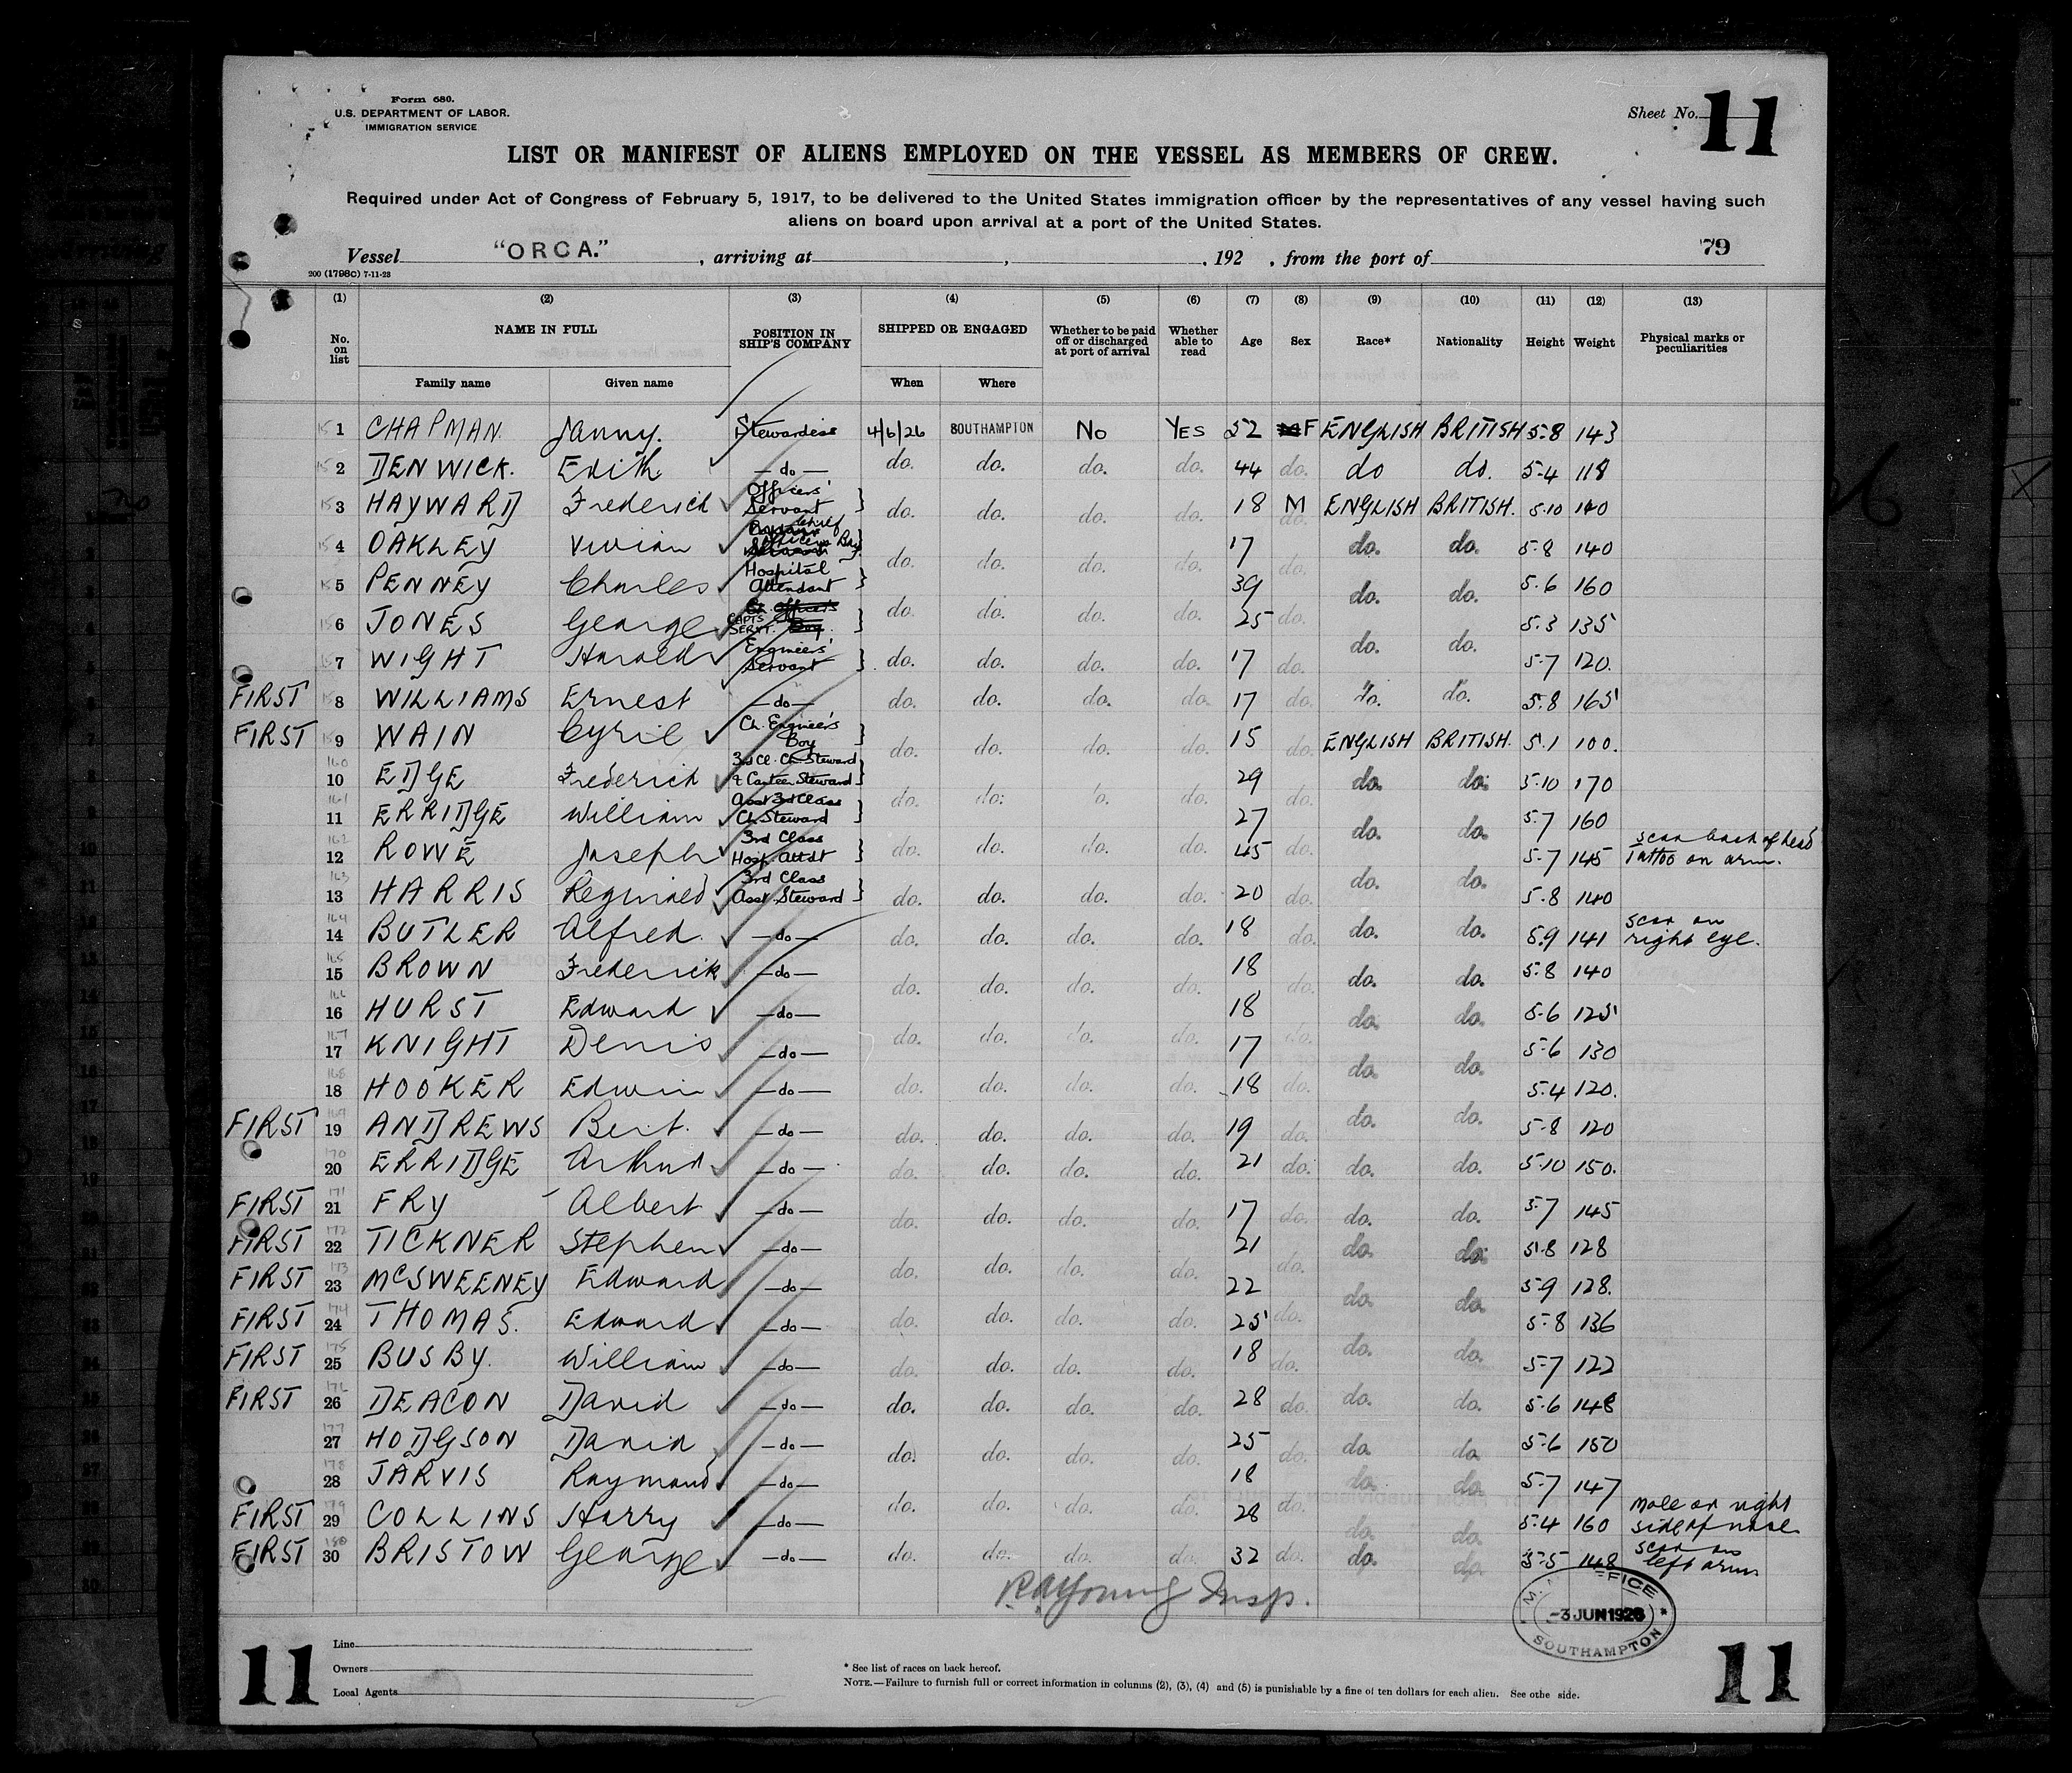 Form 680.
U.S. DEPARTMENT OF LABOR.
IMMIGRATION SERVICE
Sheet No. 11
LIST OR MANIFEST OF ALIENS EMPLOYED ON THE VESSEL AS MEMBERS OF CREW.
Required under Act of Congress of February 5, 1917, to be delivered to the United States immigration officer by the representatives of any vessel having such
aliens on board upon arrival at a port of the United States.
Vessel "ORCA." , arriving at , , 192 , from the port of 79
200 (1798C) 7-11-23
(1) (2) (3) (4) (5) (6) (7) (8) (9) (10) (11) (12) (13)
No. on list NAME IN FULL POSITION IN SHIP'S COMPANY SHIPPED OR ENGAGED Whether to be paid off or discharged at port of arrival Whether able to read Age Sex Race* Nationality Height Weight Physical marks or peculiarities
Family name Given name When Where
1 CHAPMAN. Fanny. Stewardess 4/6/26 SOUTHAMPTON No YES 52 F ENGLISH BRITISH 5-8 143
2 DENWICK. Edith — do — do. do. do. do. 44 do. do do. 5-4 118
3 HAYWARD Frederick Officers' Servant do. do. do. do. 18 M ENGLISH BRITISH. 5-10 140
4 OAKLEY Vivian do. do. do. do. 17 do. do. do. 5-8 140
5 PENNEY Charles Hospital Attendant do. do. do. do. 39 do. do. 5-6 160
6 JONES George CAPTS SERVT. do. do. do. do. 25 do. do. do. 5-3 135
7 WIGHT Harold Engineers' Servant do. do. do. do. 17 do. 5-7 120.
FIRST 8 WILLIAMS Ernest — do — do. do. do. do. 17 do. do. do. 5-8 165
FIRST 9 WAIN Cyril Ch. Engineer's Boy do. do. do. do. 15 do. ENGLISH BRITISH. 5-1 100.
160 10 EDGE Frederick 3rd Cl. Ch. Steward & Canteen Steward 29 do. do. 5-10 170
161 11 ERRIDGE William Asst 3rd Class Ch. Steward do. do. do. do. 27 do. do. do. 5-7 160
162 12 ROWE Joseph 3rd Class Hosp. Attdt do. do. do. do. 45 do. do. do. 5-7 145 scar back of head Tattoo on arm.
163 13 HARRIS Reginald 3rd Class Asst. Steward do. do. do. do. 20 do. 5-8 140
164 14 BUTLER Alfred. — do — do. do. do. do. 18 do. do. do. 5-9 141 scar on right eye.
165 15 BROWN Frederick — do — do. do. do. do. 18 do. do. do. 5-8 140
166 16 HURST Edward — do — 18 do. do. 5-6 125
167 17 KNIGHT Denis — do — do. do. do. do. 17 do. do. do. 5-6 130
168 18 HOOKER Edwin — do — do. do. do. do. 18 do. 5-4 120.
FIRST 169 19 ANDREWS Bert. — do — do. do. do. do. 19 do. do. do. 5-8 120
170 20 ERRIDGE Arthur — do — do. do. do. do. 21 do. do. do. 5-10 150.
FIRST 171 21 FRY Albert — do — do. do. do. do. 17 do. do. do. 5-7 145
FIRST 172 22 TICKNER Stephen — do — 21 do. do. do. 5-8 128
FIRST 173 23 McSWEENEY Edward — do — do. do. do. do. 22 do. do. 5-9 128.
FIRST 174 24 THOMAS. Edward — do — do. do. do. do. 25 do. 5-8 136
FIRST 175 25 BUSBY. William — do — do. do. do. do. 18 do. do. do. 5-7 122
FIRST 176 26 DEACON David — do — do. do. do. do. 28 do. do. do. 5-6 148
177 27 HODGSON David — do — do. do. do. do. 25 do. do. do. 5-6 150
178 28 JARVIS Raymond — do — 18 do. do. 5-7 147
FIRST 179 29 COLLINS Harry — do — do. do. do. do. 28 do. do. do. 5-4 160 mole on right side of nose
FIRST 180 30 BRISTOW George — do — do. do. do. do. 32 do. do. do. 5-5 148 scar on left arm
R.A. Young Insp.
-3 JUN 1926
SOUTHAMPTON
11 11
Line
Owners
Local Agents
* See list of races on back hereof.
NOTE.—Failure to furnish full or correct information in columns (2), (3), (4) and (5) is punishable by a fine of ten dollars for each alien. See othe side.